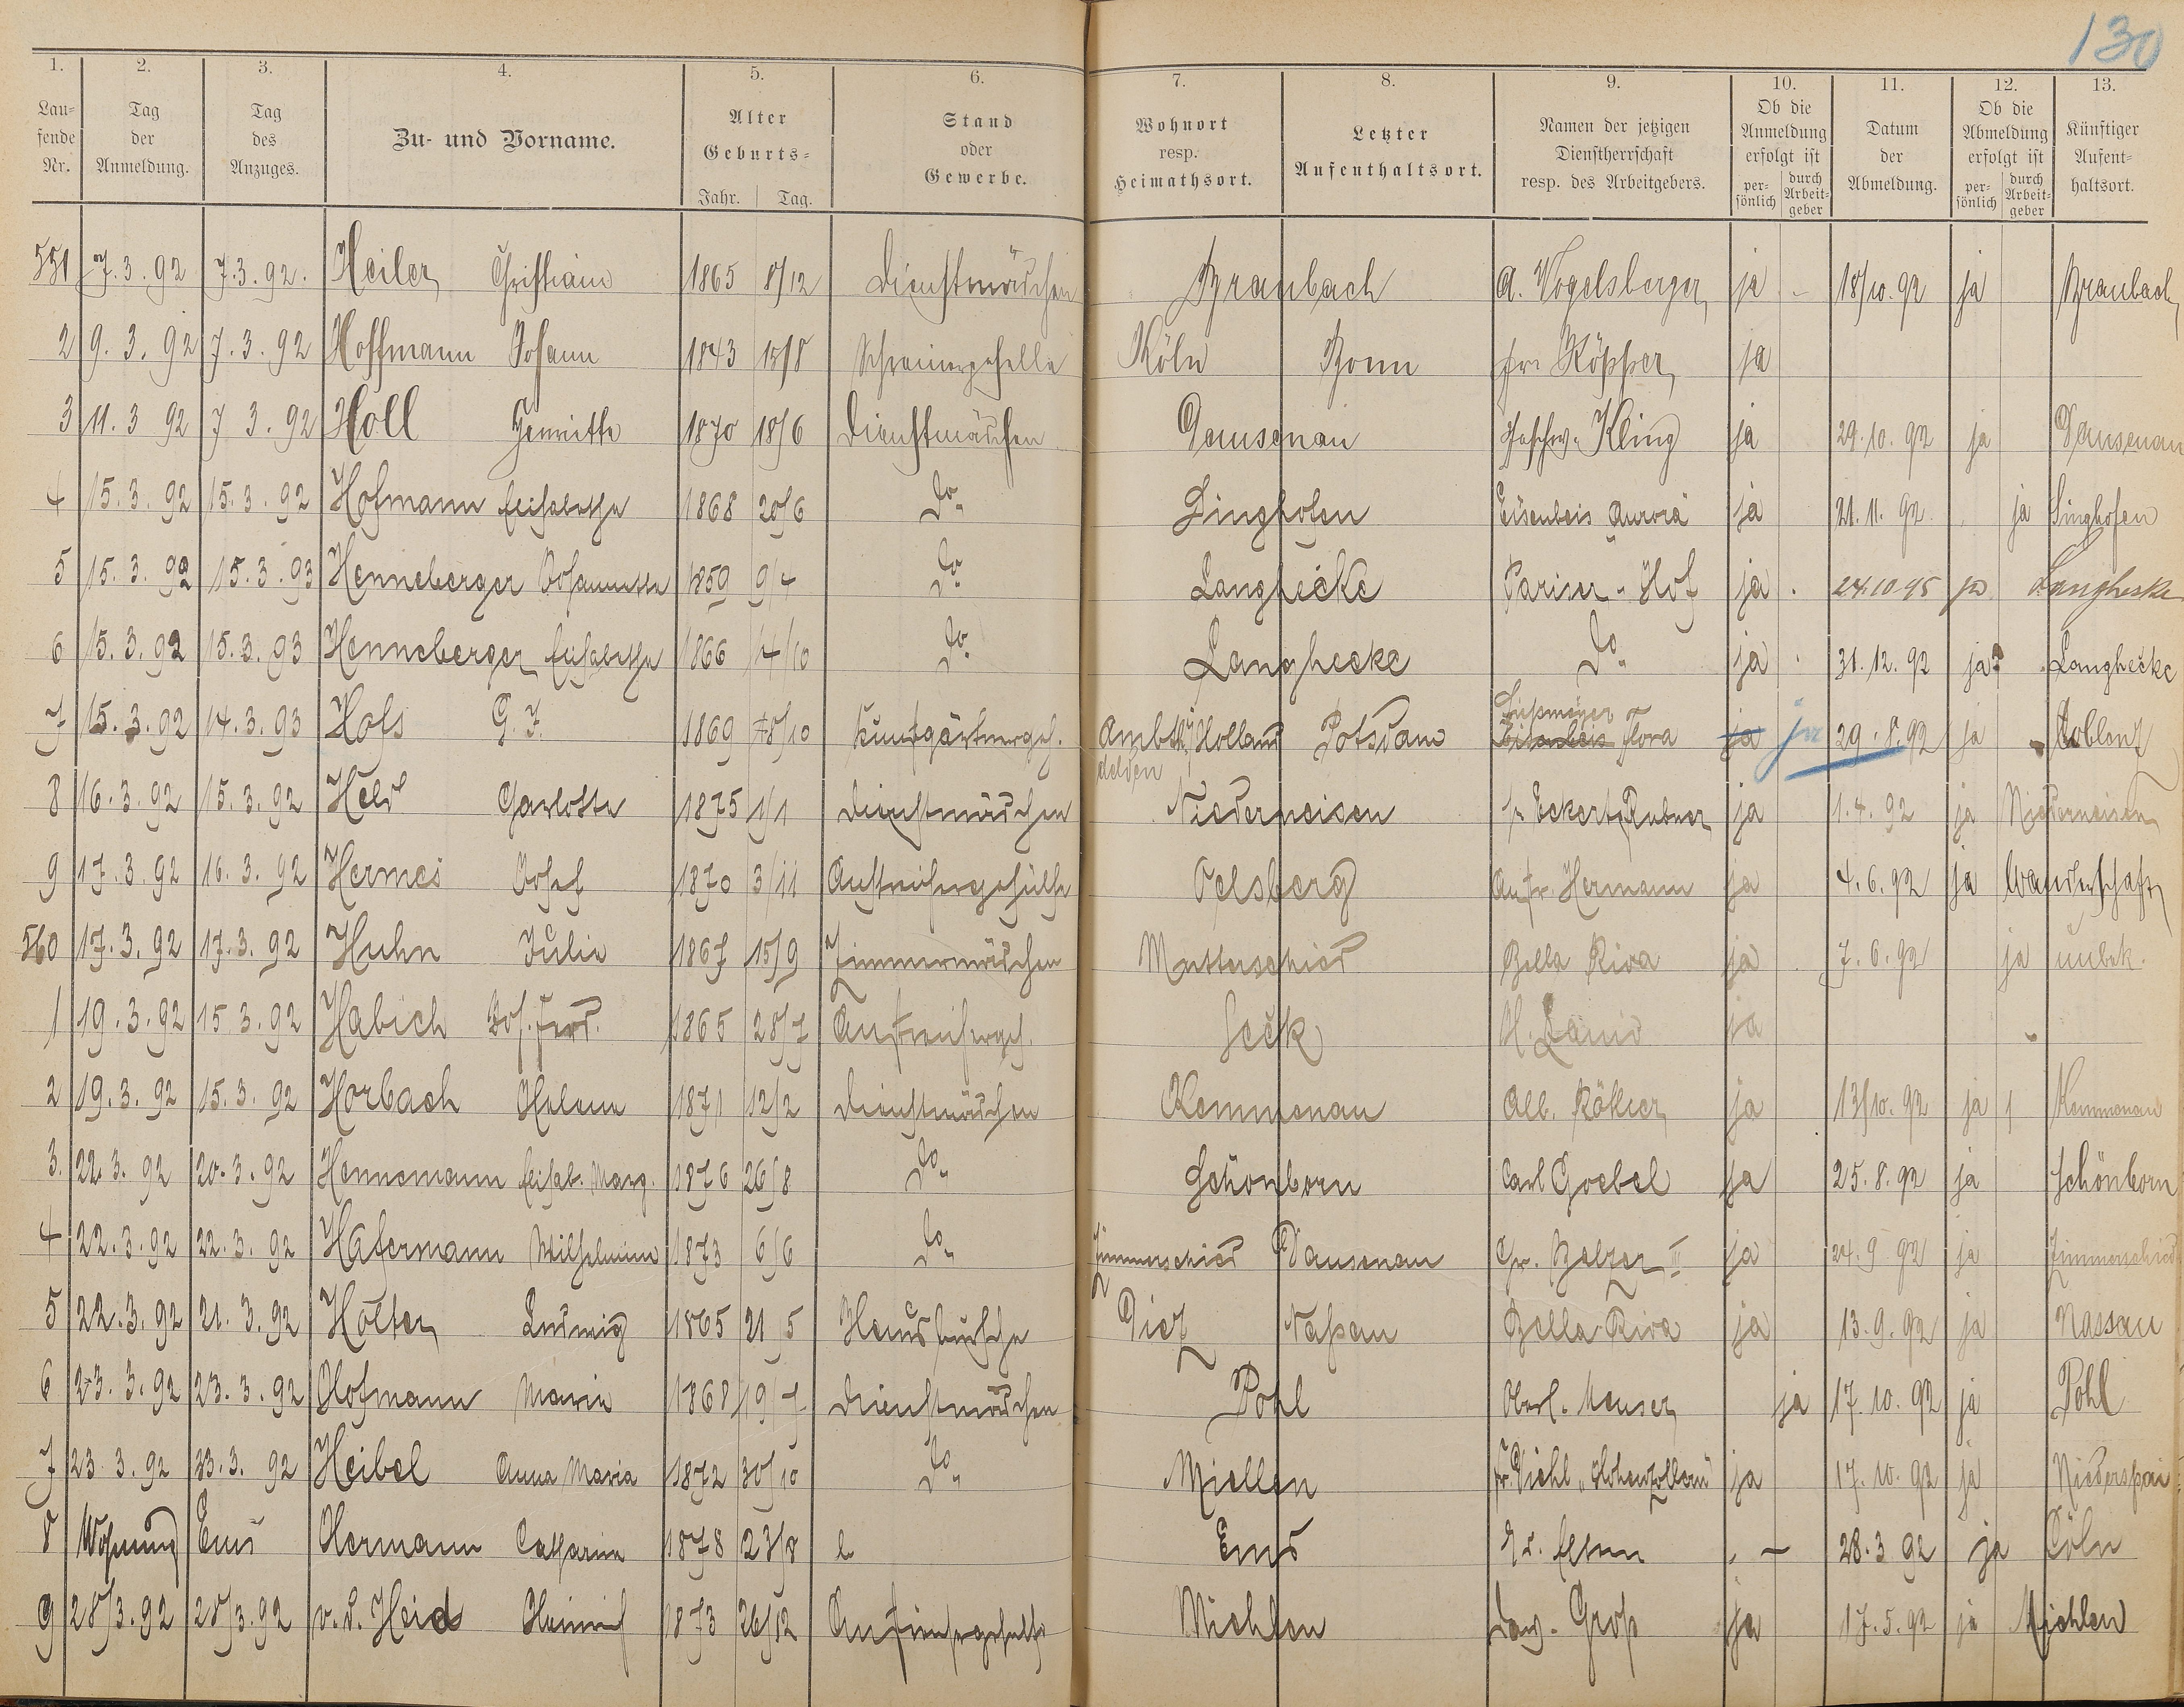 130
1. 2. 3. 4. 5. 6. 7. 8. 9. 10. 11. 12. 13.
Lau-
fende
Nr.
Tag
der
Anmeldung.
Tag
des
Anzuges.
Zu- und Vorname.
Alter
Geburts-
Jahr. Tag.
Stand
oder
Gewerbe.
Wohnort
resp.
Heimathsort.
Letzter
Aufenthaltsort.
Namen der jetzigen
Dienstherrschaft
resp. des Arbeitgebers.
Ob die
Anmeldung
erfolgt ist
per-
sönlich
durch
Arbeit-
geber
Datum
der
Abmeldung.
Ob die
Abmeldung
erfolgt ist
per-
sönlich
durch
Arbeit-
geber
Künftiger
Aufent-
haltsort.
551 7.3.92 7.3.92. Heiler Christiane 1865 8/12 Dienstmädchen Braubach A. Vogelsberger ja - 18/10.92 ja Braubach
2 9.3.92 7.3.92 Hoffmann Johann 1843 15/8 Schreinergeselle Köln Bonn Köpper ja
3 11.3 92 7 3.92 Holl Henriette 1870 18/6 Dienstmädchen Dausenau Geschw. Kling ja 29.10.92 ja Dausenau
4 15.3.92 15.3.92 Hofmann Elisabetha 1868 20/6 Do. Singhofen Eisenbeis Aurora ja 21.11.92 ja Singhofen
5 15.3.92 15.3.93 Henneberger Johannette 1859 9/4 Do Langhecke Pariser-Hof ja 24.10 95 ja Langhecke
6 15.3.92 15.3.93 Henneberger Elisabetha 1866 14/10 Do. Langhecke Do. ja 31.12.92 ja Langhecke
7 15.3.92 14.3.93 Hols G. J. 1869 Kunstgärtnergeh. Holland Potsdam
Flora ja ja 29.8.92 ja Coblenz
8 16.3.92 15.3.92 Held Charlotte 1875 1/1 Dienstmädchen Niederneisen Eckert ja 1.4.92 ja Niederneisen
9 17.3.92 16.3.92 Hermes Josef 1870 3/11 Anstreichergehülfe Oelsberg Hermann ja 4.6.92 ja Wanderschaft
560 17.3.92 17.3.92 Huhn Julie 1867 15/9 Zimmermädchen Mutterschied Bella Riva ja 7.6.92 ja unbek.
1 19.3.92 15 3.92 Habich Joh. Ferd. 1865 28/7 Anstreicherge. Seck ja
2 19.3.92 15.3.92 Horbach Helene 1871 12/2 Dienstmädchen Kemmenau Alb. ja 13/10.92 ja Kemmenau
3. 22.3.92 20.3.92 Hennemann Elisab. Marg. 1876 26/8 Do. Schönborn Carl Goebel ja 25.8.92 ja Schönborn
4 22.3.92 22.3.92 Hafermann Wilhelmine 1873 6/6 Do. Zimmerschied Dausenau Chr. Balzer II ja 24.9 92 ja Zimmerschied
5 22.3.92 21.3.92 Holter Ludwig 1865 21 5 Hausbursche Diez Nassau Bella Riva ja 13.9.92 ja Nassau
6 23.3.92 23.3.92 Hofmann Maria 1868 19/7 Dienstmädchen Pohl Mauser ja 17.10.92 ja Pohl
7 23.3.92 23.3.92 Heibel Anna Maria 1872 30/10 Do. Miellen Diehl "Hohenzollern" ja 17.10.92 ja Niederspai
8 Wohnung Ems Hermann Catharine 1878 23/8 Ems - 28.3 92 ja Cöln
9 28/3.92 28/3.92 v. d. Heid Heinrich 1873 26/12 Anstreichergehülfe Miehlen Groß ja 17.5.92 ja Miehlen